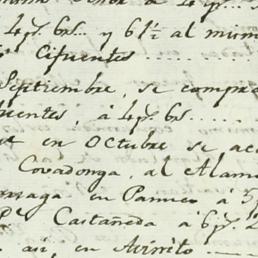 4 p.s 6 rs... y 61½ al mism
Cifuentes
Septiembre, se compra
uentes, á 4 p.s 6 rs
en Octubre se ac
Covadonga, al Alamo
rraga en Panuco á 5 p
Castañeda á 6 p.s 2
asi, en Avinito